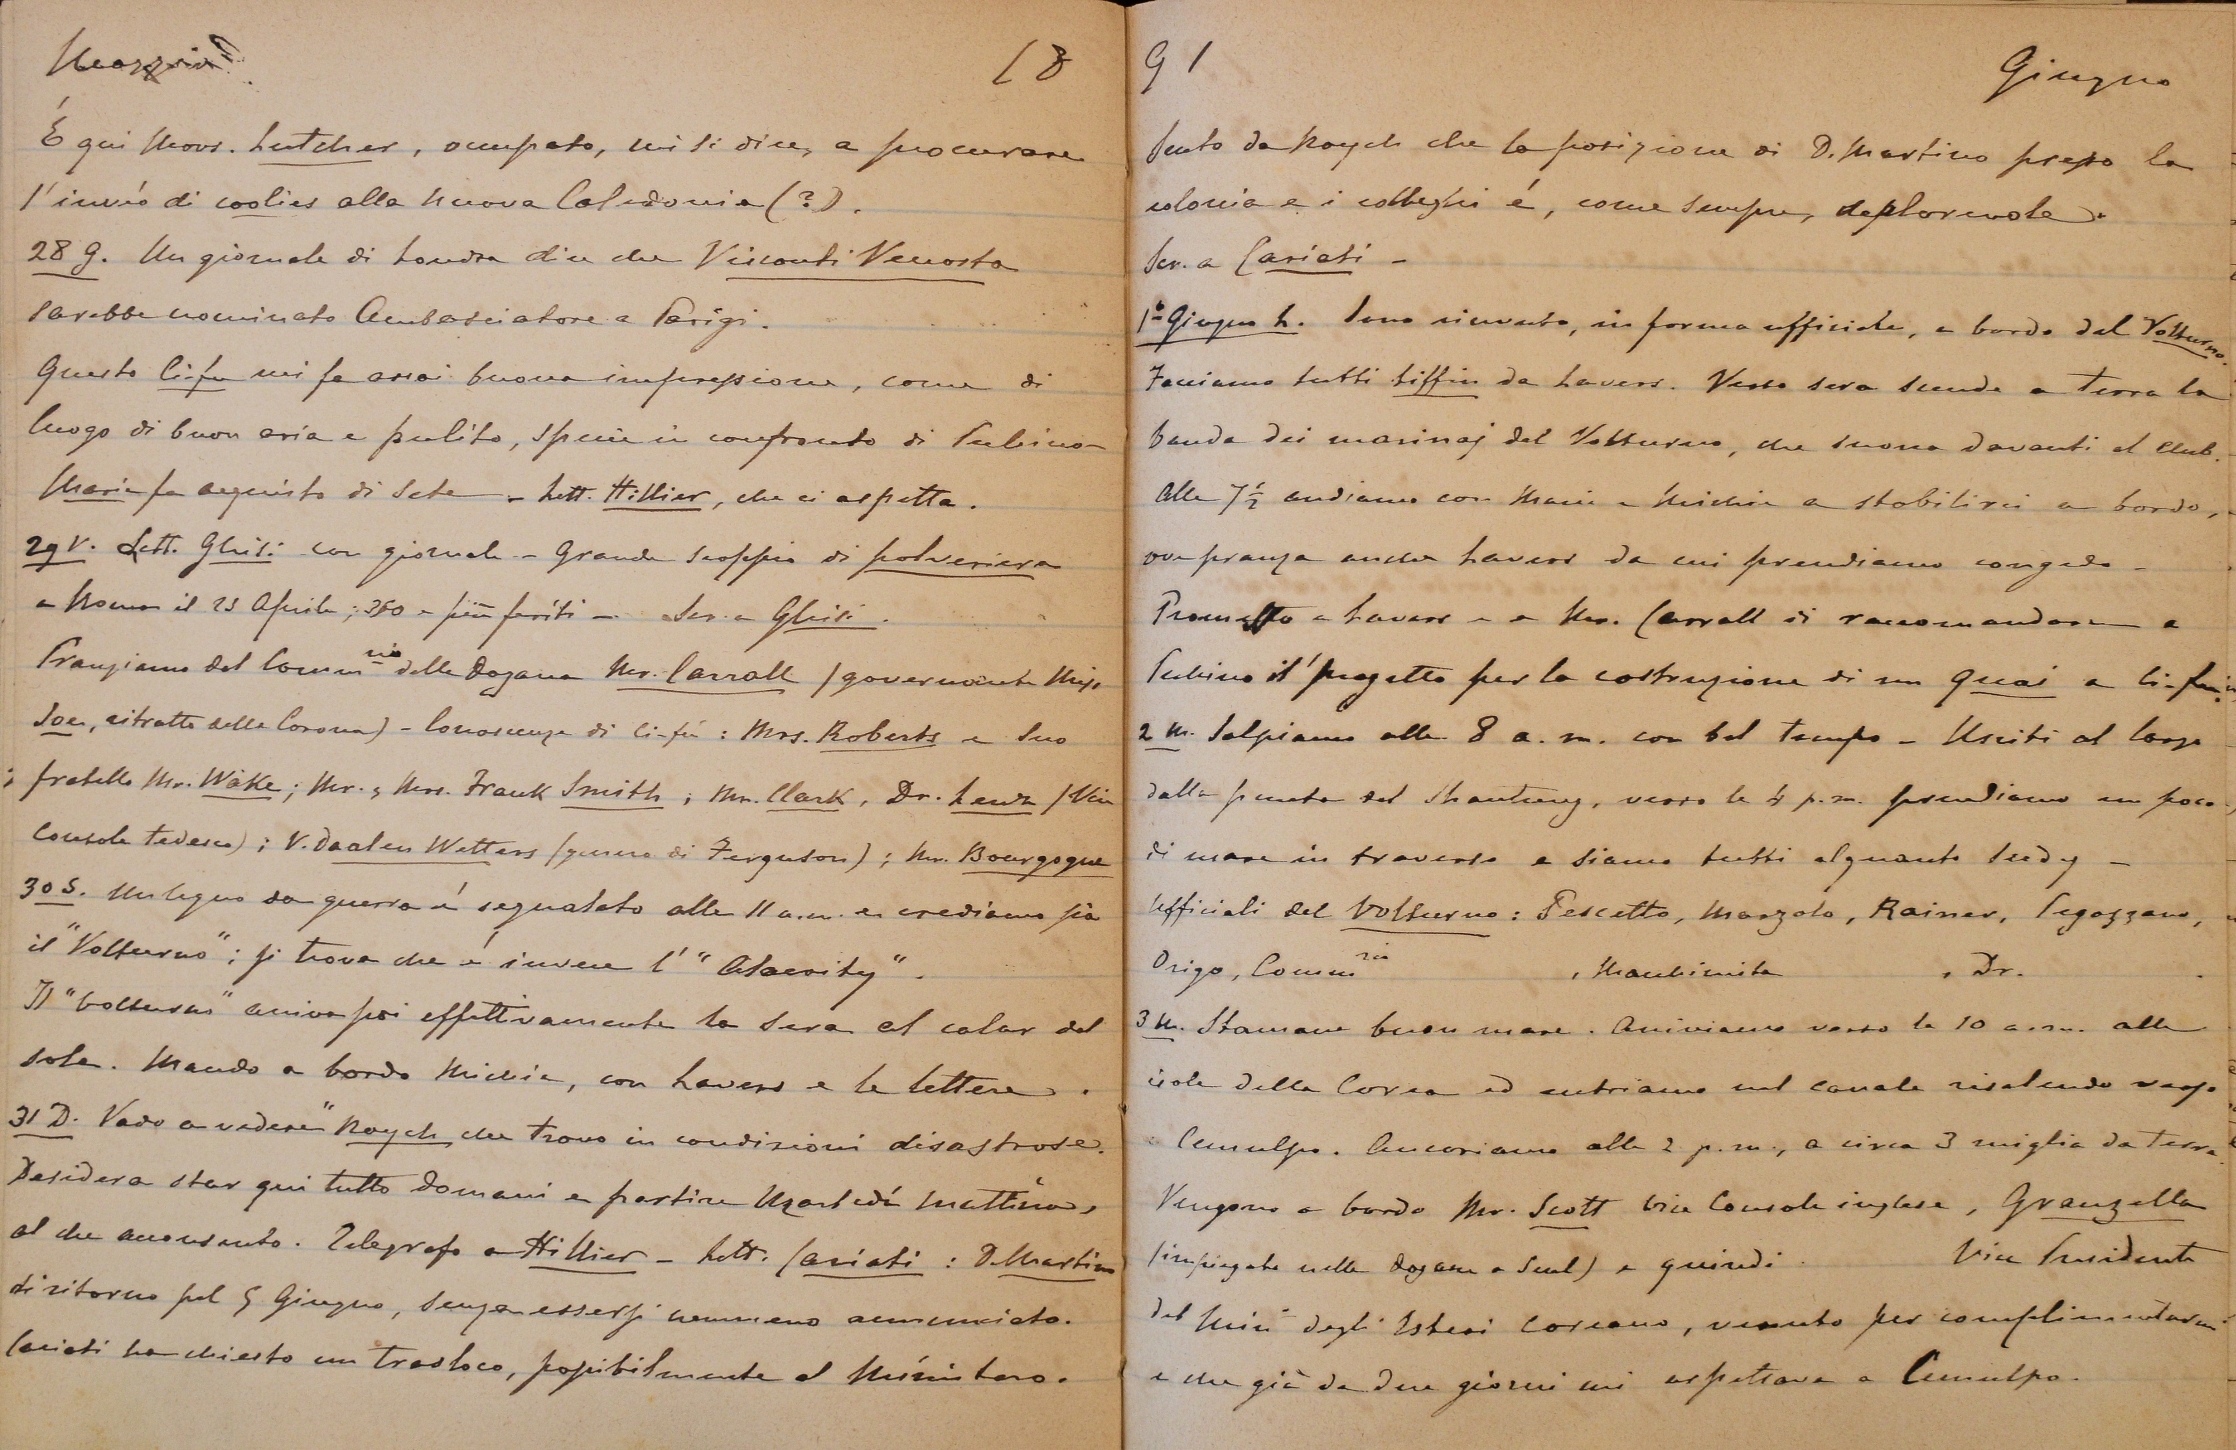 Maggio
18
È qui Mons. Lutcher, occupato, mi si dice, a procurare
l'invio di coolies alla Nuova Caledonia (?).
28 G. Un giornale di Londra dice che Visconti Venosta
sarebbe nominato Ambasciatore a Parigi.
Questo Ci-fu mi fa assai buona impressione, come di
luogo di buon aria e pulito, specie in confronto di Pechino.
Maria fa acquisto di sete. – Lett. Hillier, che ci aspetta.
29 V. Lett. Ghisi con giornale – Grande scoppio di polveriera
a Roma il 23 Aprile; 350 e più feriti – Scr. a Ghisi.
Pranziamo dal Comm.rio delle Dogane Mr. Carrall (governante Miss
Soen, ritratto della Corona) – Conoscenze di Ci-fù: Mrs. Roberts e suo
fratello Mr. Wake; Mr. e Mrs. Frank Smith; Mr. Clark, Dr. Lenz (Vice
Console tedesco); V. Daalen Wetters (genero di Ferguson); Mr. Bourgogne
30 S. Un legno da guerra è segnalato alle 11 a.m. e crediamo sia
il "Volturno"; si trova che è invece l'"Alacrity".
Il "Volturno" arriva poi effettivamente la sera al calar del
sole. Mando a bordo Michie, con Lavers e le lettere.
31 D. Vado a vedere Roych che trovo in condizioni disastrose.
Desidera star qui tutto domani e partire Martedì mattina,
al che acconsento. Telegrafo a Hillier – Lett. Cariati: D. Martino
di ritorno pel 5 Giugno, senza essersi nemmeno annunciato.
Cariati ha chiesto un trasloco, possibilmente al Ministero.
91
Giugno
Sento da Roych che la posizione di D. Martino presso la
colonia e i colleghi è, come sempre, deplorevole.
Scr. a Cariati –
1º Giugno L. Sono ricevuto, in forma ufficiale, a bordo del Volturno.
Facciamo tutti tiffin da Lavers. Verso sera scende a terra la
banda dei marinaj del Volturno, che suona davanti al club.
Alle 7½ andiamo con Maria e Michie a stabilirci a bordo,
ove pranza anche Lavers da cui prendiamo congedo –
Prometto a Lavers e a Mr. Carrall di raccomandare a
Pechino il progetto per la costruzione di un quai a Ci-fu.
2 M. Salpiamo alle 8 a.m. con bel tempo – Usciti al largo
dalla punta del Shantung, verso le 4 p.m. prendiamo un poco
di mare in traverso e siamo tutti alquanto seedy –
Ufficiali del Volturno: Pescetto, Marzolo, Rainer, Pegazzano,
Origo, Comm.rio , Macchinista , Dr. .
3 M. Stamane buon mare. Arriviamo verso le 10 a.m. alle
isole della Corea ed entriamo nel canale risalendo verso
Cemulpo. Ancoriamo alle 2 p.m., a circa 3 miglia da terra.
Vengono a bordo Mr. Scott Vice Console inglese, Granzella
(impiegato nelle dogane a Seul) e quindi Vice Presidente
del Min. degli Esteri Coreano, venuto per complimentarmi
e che già da due giorni mi aspettava a Cemulpo.